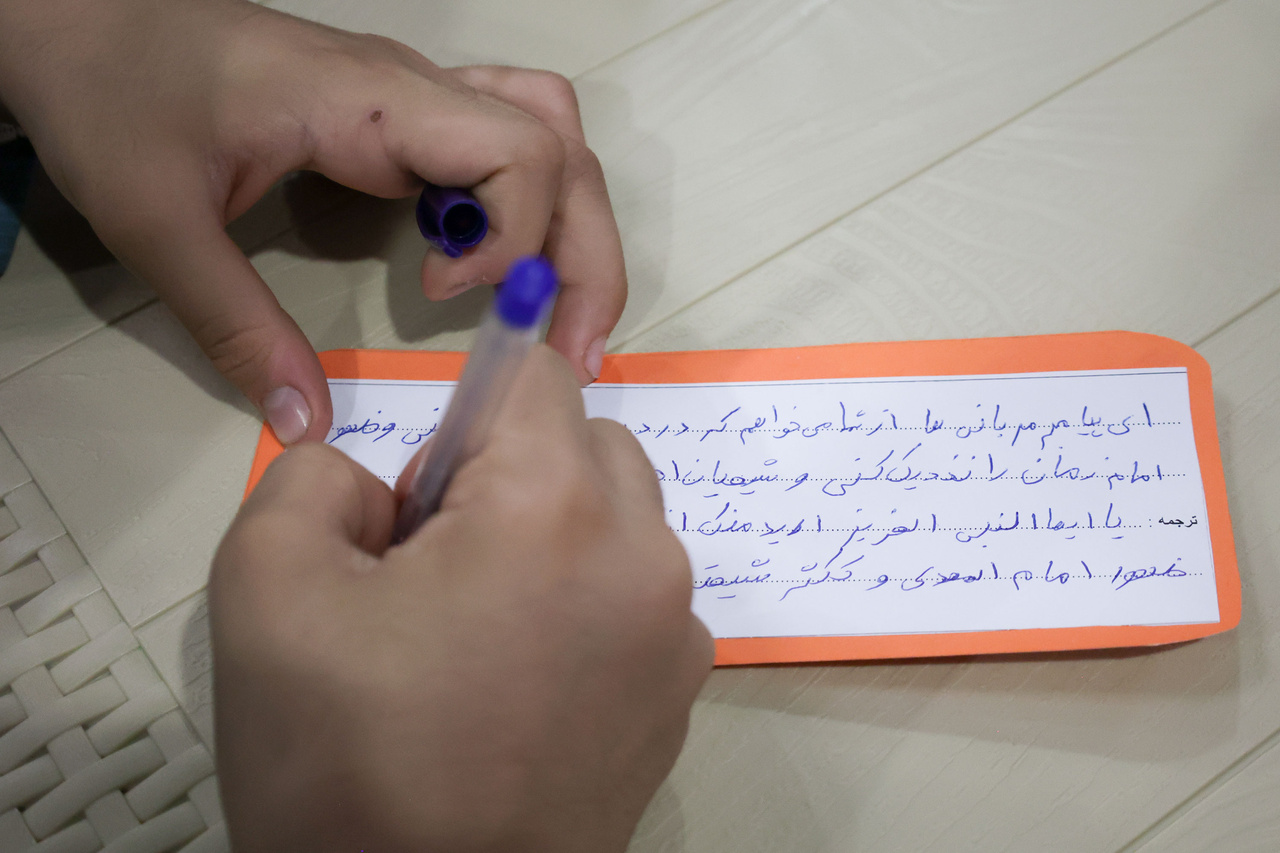 ای پیامبر مهربانی ها از شما می‌خواهم که در د نی وظهور
امام زمان را نزدیک کنی و شیعیان
ترجمه : یا ایها النبی العزیز ارید منک
ظهور امام المهدی و کثر